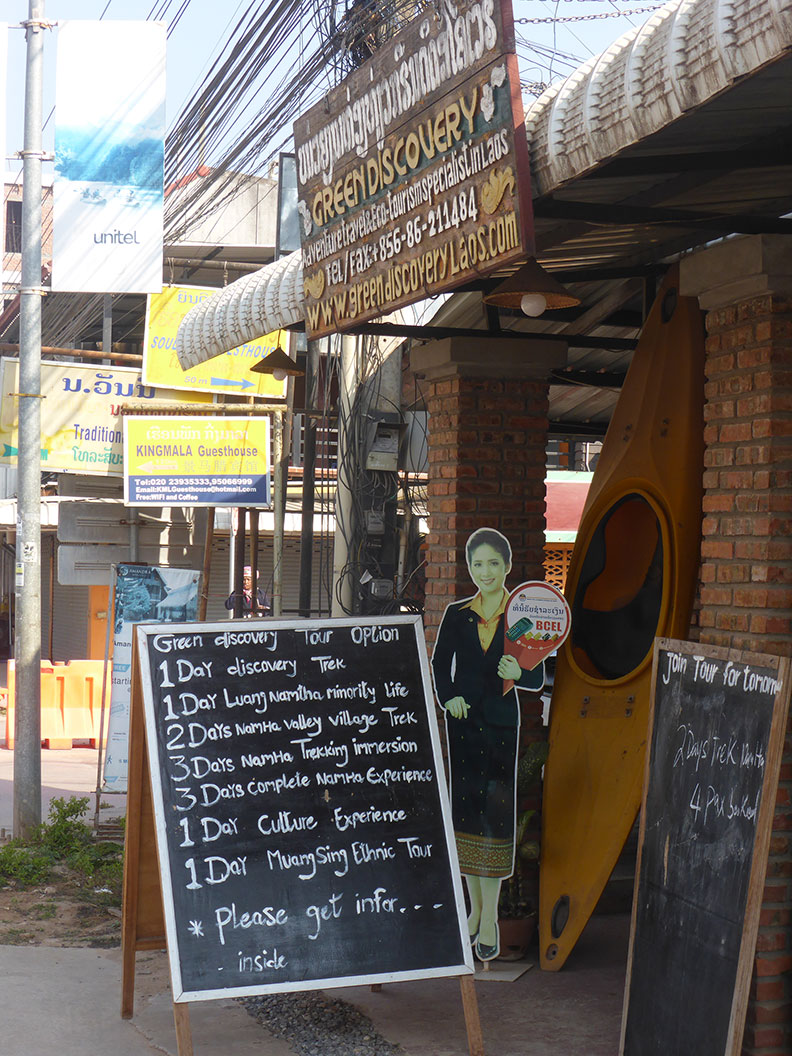 unitel
GREEN DISCOVERY
Adventure travel & Eco-tourism specialist in Laos
TEL/FAX: +856-86-211484
www.greendiscoverylaos.com
50 m
ນ.ອັນນ
Traditional
ເຮືອນພັກ ກິ່ງມາລາ
KINGMALA Guesthouse
Tel:020 23935333,95066999
Email:KMLGuesthouse@hotmail.com
Free:WIFI and Coffee
ທີ່ນີ້ຮັບຊຳລະເງິນ
BCEL
Green discovery Tour Option
1 Day discovery Trek
1 Day Luang Namtha minority Life
2 Days Namha valley village Trek
3 Days Namha Trekking immersion
3 Days complete Namha Experience
1 Day Culture Experience
1 Day Muang Sing Ethnic Tour
* Please get infor....
- inside
Join Tour for tomorr
2 Days Trek Namha
4 Pax